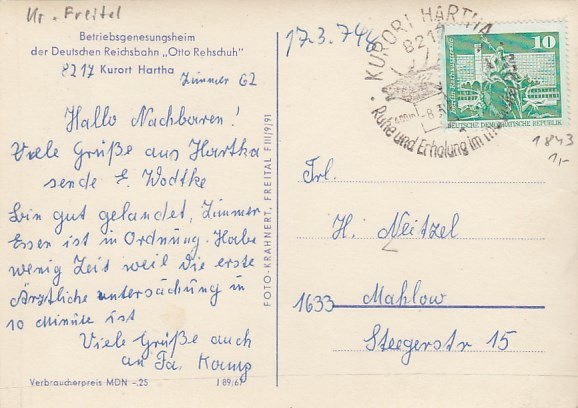 Kr. Freital
Betriebsgenesungsheim
der Deutschen Reichsbahn „Otto Rehschuh"
8217 Kurort Hartha
Zimmer 62
Hallo Nachbaren!
Viele Grüße aus Hartha
sende E. Wodtke
Bin gut gelandet, Zimmer
Essen ist in Ordnung. Habe
wenig Zeit weil die erste
Ärztliche untersuchung in
10 minute ist
Viele Grüße auch
an Fa. Kamp
Verbraucherpreis MDN -.25
J 89/67
FOTO-KRAHNERT, FREITAL F III/9/91
17.3.74
KURORT HARTHA
8217
Ruhe und Erholung im
10
DEUTSCHE DEMOKRATISCHE REPUBLIK
1843
1,-
Frl.
H. Neitzel
1633 Mahlow
Steegerstr 15